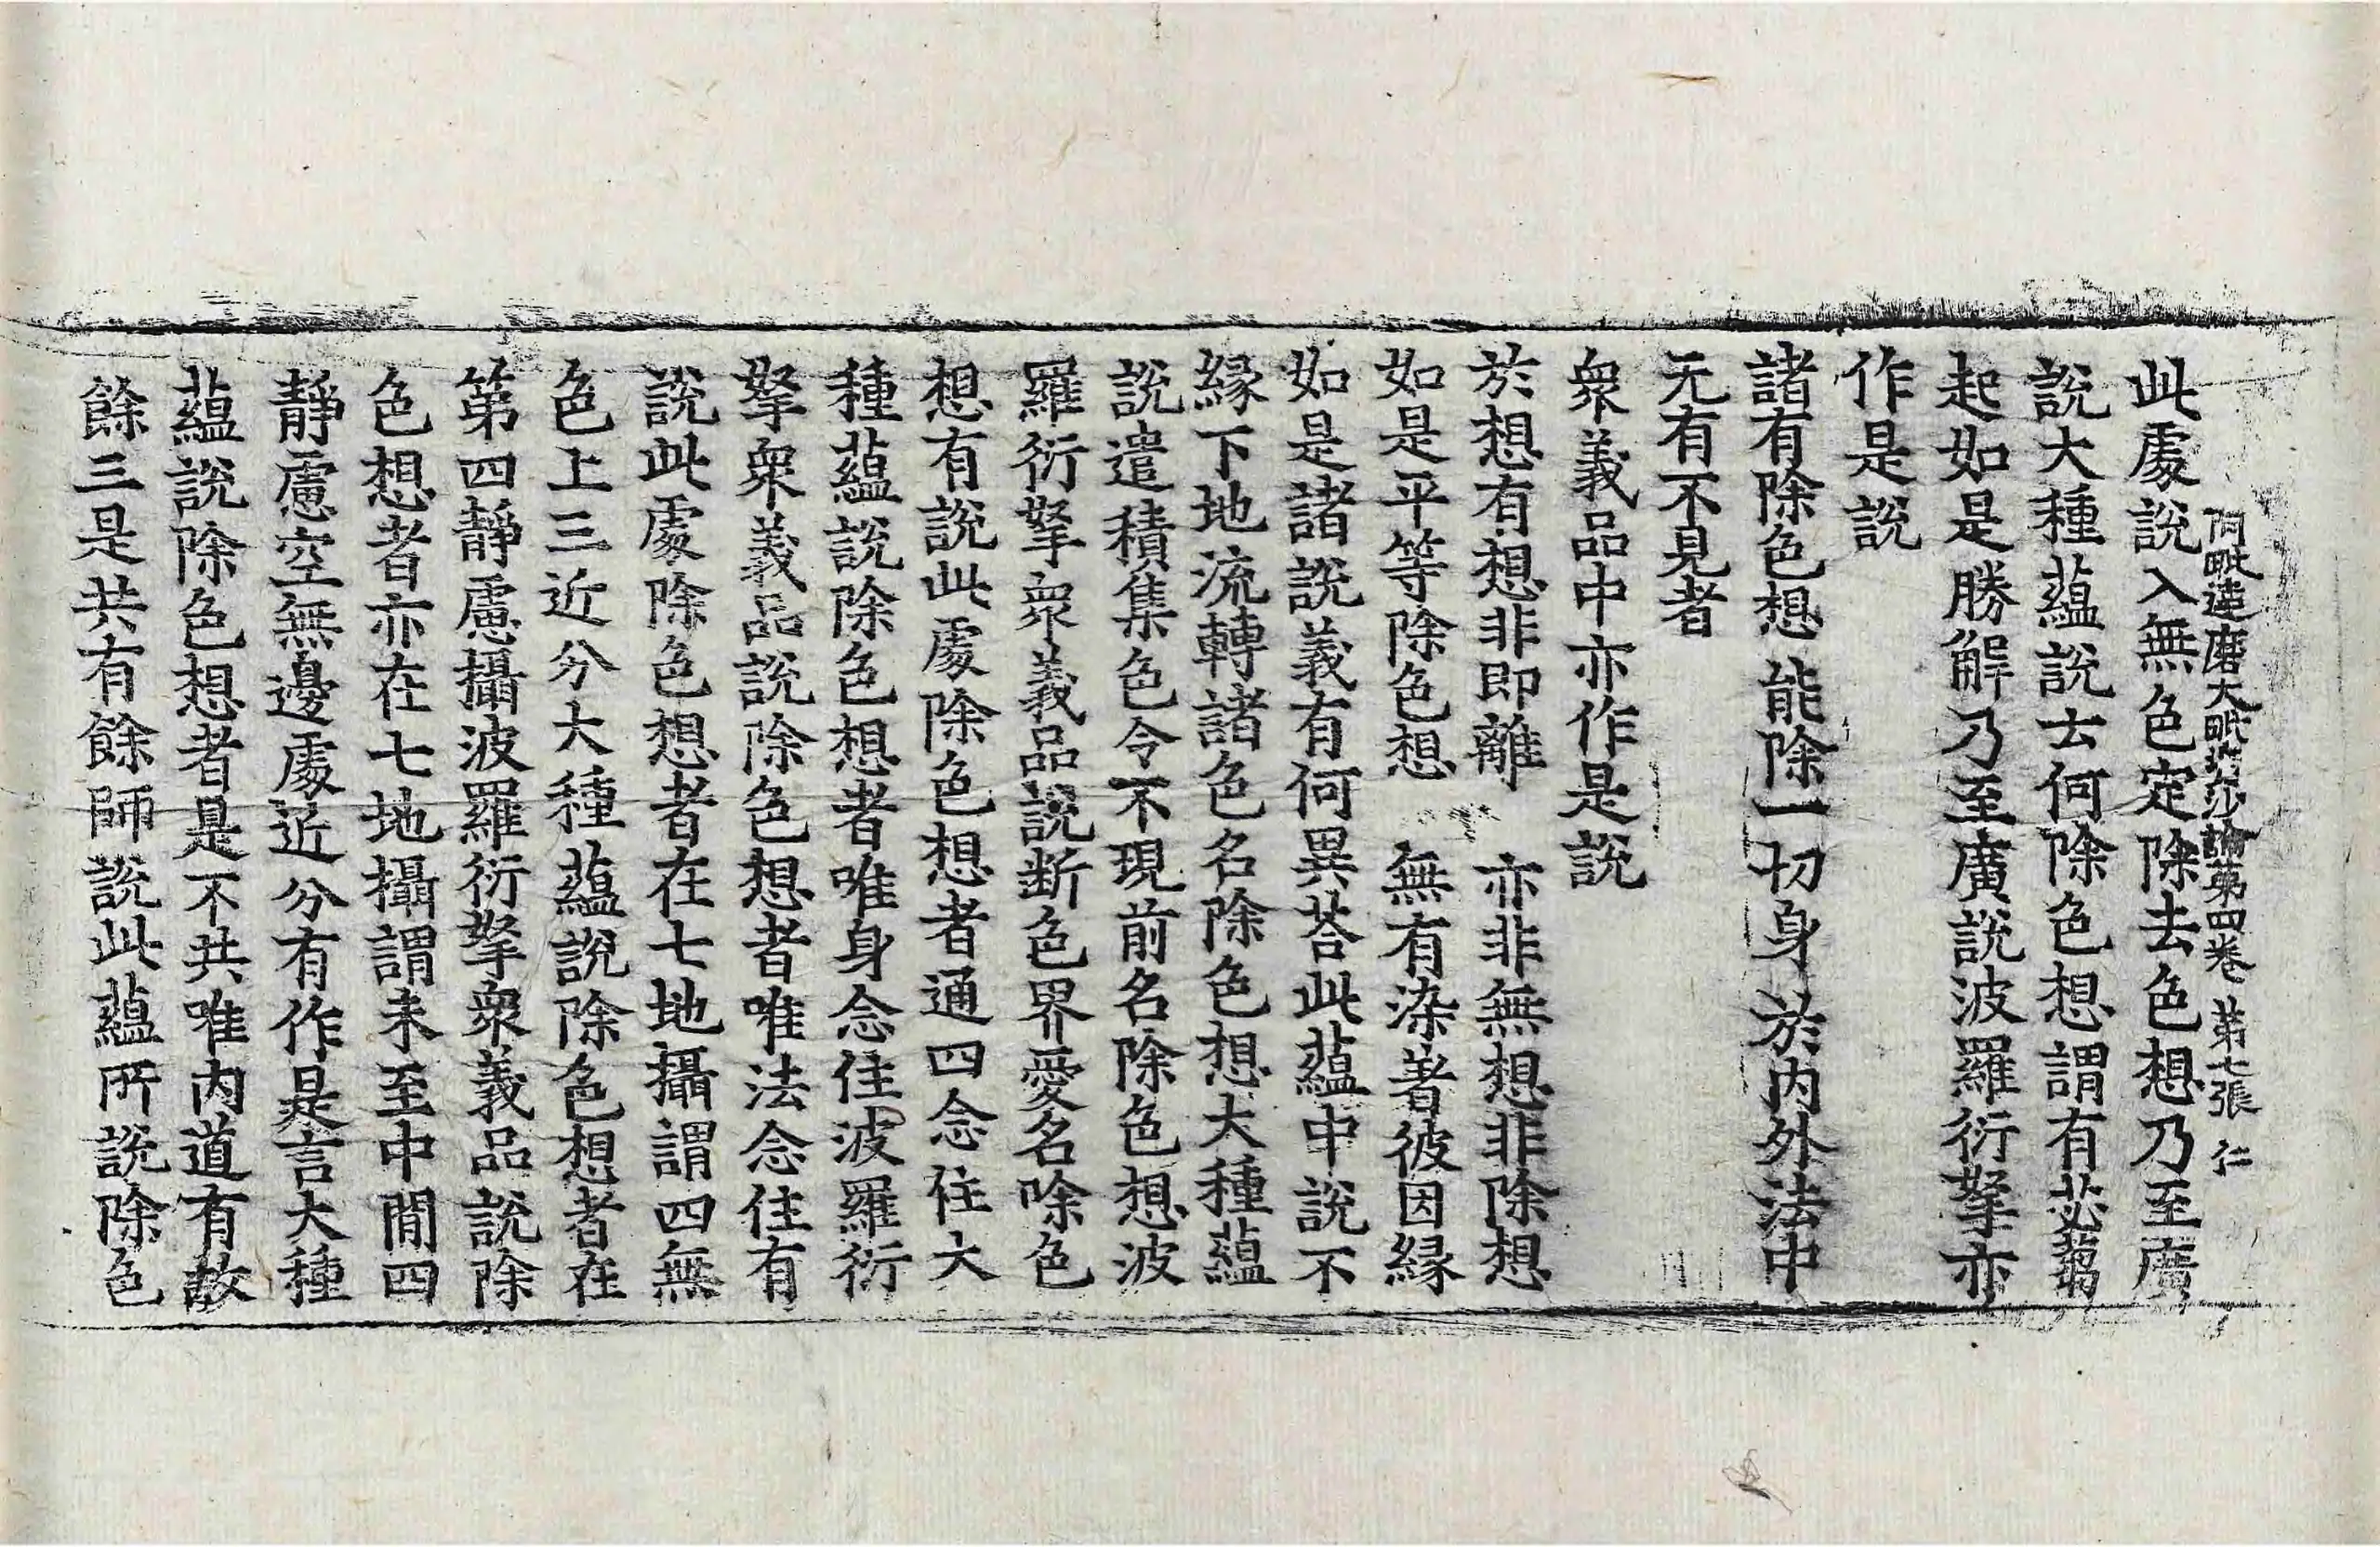 阿毗達磨大毗婆沙論第四卷 第七張 仁
此處說入無色定除去色想乃至廣
說大種蘊說云何除色想謂有苾蒭
起如是勝解乃至廣說波羅衍拏亦
作是說
諸有除色想 能除一切身 於內外法中
无有不見者
衆義品中亦作是說
於想有想非即離 亦非無想非除想
如是平等除色想 無有染著彼因緣
如是諸說義有何異荅此蘊中說不
緣下地流轉諸色名除色想大種蘊
說遣積集色令不現前名除色想波
羅衍拏衆義品說断色界愛名除色
想有說此處除色想者通四念住大
種蘊說除色想者唯身念住波羅衍
拏衆義品說除色想者唯法念住有
說此處除色想者在七地攝謂四無
色上三近分大種蘊說除色想者在
第四靜慮攝波羅衍拏衆義品說除
色想者亦在七地攝謂未至中間四
靜慮空無邊處近分有作是言大種
蘊說除色想者是不共唯内道有故
餘三是共有餘師說此蘊所說除色